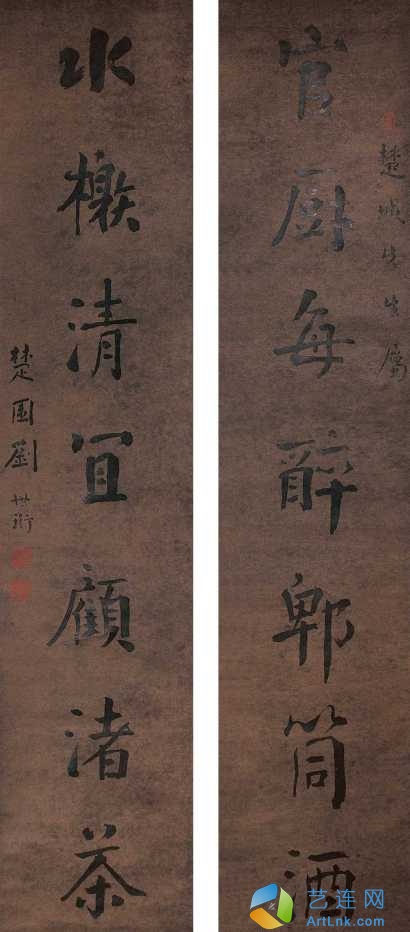 楚城先生屬
官厨每醉郫筒酒
水清冝顧渚茶
楚園劉世珩
艺连网
ArtLnk.com